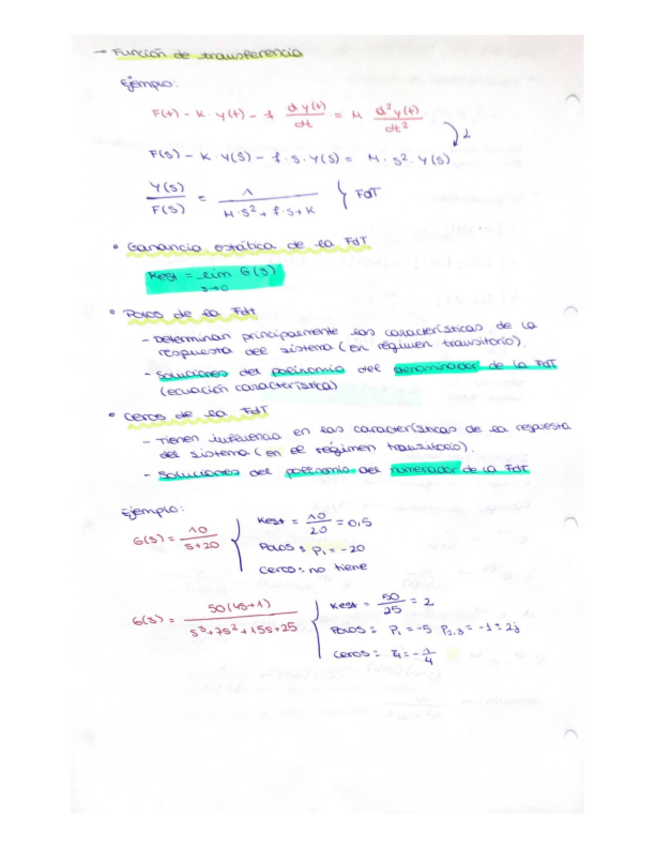 → Función de transferencia
Ejemplo:
F(t) - K · y(t) - f dy(t)/dt = M d²y(t)/dt²
L
F(s) - K · Y(s) - f · s · Y(s) = M · s² · Y(s)
Y(s)/F(s) = 1/(M·s² + f·s + K) } FdT
• Ganancia estática de la FdT
Kest = lim G(s)
s→0
• Polos de la Fdt
- Determinan principalmente las características de la
respuesta del sistema (en régimen transitorio).
- Soluciones del polinomio del denominador de la FdT
(ecuación característica)
• Ceros de la FdT
- Tienen influencia en las características de la respuesta
del sistema (en el régimen transitorio).
- Soluciones del polinomio del numerador de la Fdt
Ejemplo:
G(s) = 10/(s+20)
Kest = 10/20 = 0,5
Polos: p₁ = -20
Ceros: no tiene
G(s) = 50(4s+1)/(s³+7s²+15s+25)
Kest = 50/25 = 2
Polos: p₁ = -5 p₂,₃ = -1 ± 2j
Ceros: z₁ = -1/4